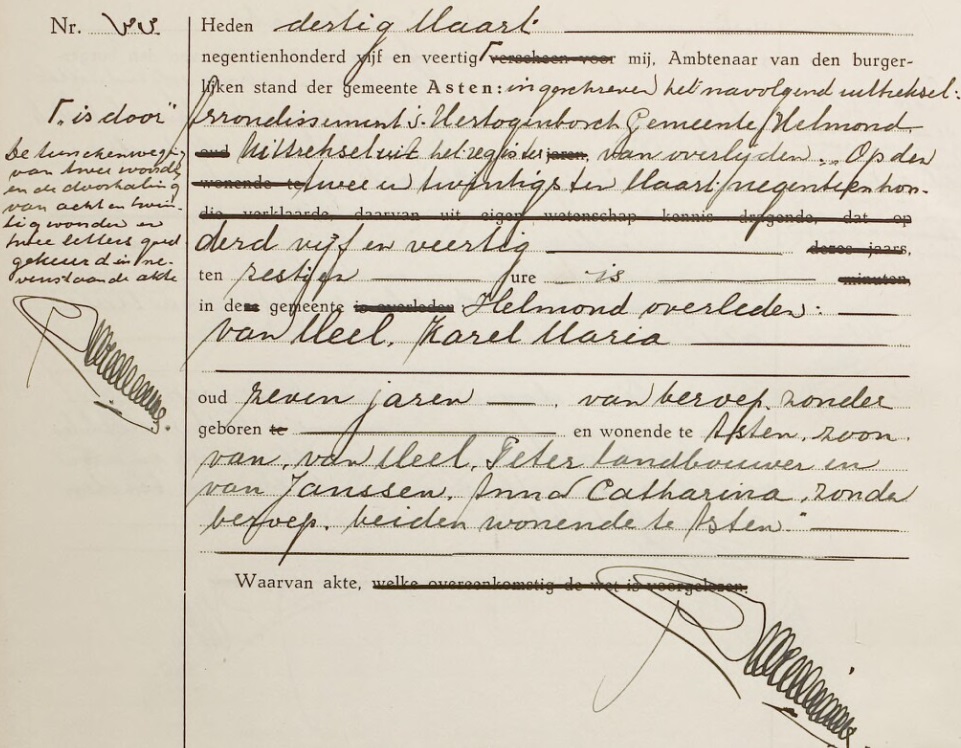 Nr. 33.
Heden dertig Maart
negentienhonderd vijf en veertig Γ verscheen voor mij, Ambtenaar van den burger-
lijken stand der gemeente Asten: ingeschreven het navolgend uittreksel:
Γ "is door"
Arrondissement 's-Hertogenbosch Gemeente Helmond
oud Uittreksel uit het register jaren, van overlijden. "Op den
wonende te twee en twintigsten Maart negentienhon-
die verklaarde, daarvan uit eigen wetenschap kennis dragende, dat op
derd vijf en veertig dezes jaars,
ten zestien ure is minuten,
in deze gemeente is overleden Helmond overleden:
van Meel, Karel Maria
De tusschenvoeging
van twee woorden
en de doorhaling
van acht en twin-
tig woorden en
twee letters goed
gekeurd in ne-
venstaande akte
oud zeven jaren, van beroep zonder
geboren te en wonende te Asten, zoon
van, van Meel, Peter landbouwer en
van Janssen, Anna Catharina, zonder
beroep, beiden wonende te Asten."
Waarvan akte, welke overeenkomstig de wet is voorgelezen.